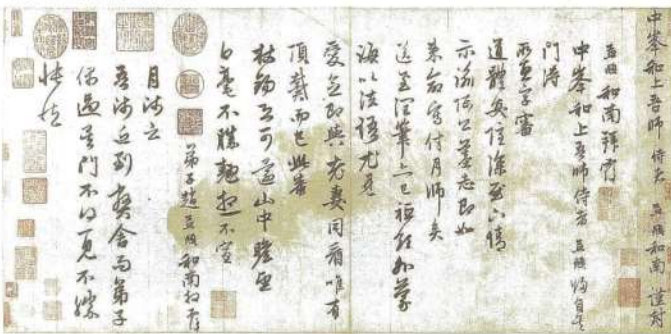 中峯和上吾師 侍者 孟頫和南 謹封
孟頫和南拜覆
中峯和上吾師侍者孟頫歸自吳
門得
所惠字審
道體安隱深慰下情
示諭公墓志即如
來命寫付月師矣
送至潤筆亦已祗領外蒙
誨以法語尤見
愛念即與老妻同看唯有
頂戴而已此番
杖錫可山中瞻望
白毫不勝翹想不宣
弟子趙孟頫和南拜覆
月師云
吾師近到弊舍而弟子
偶過吳門不得一見不勝
悵怏